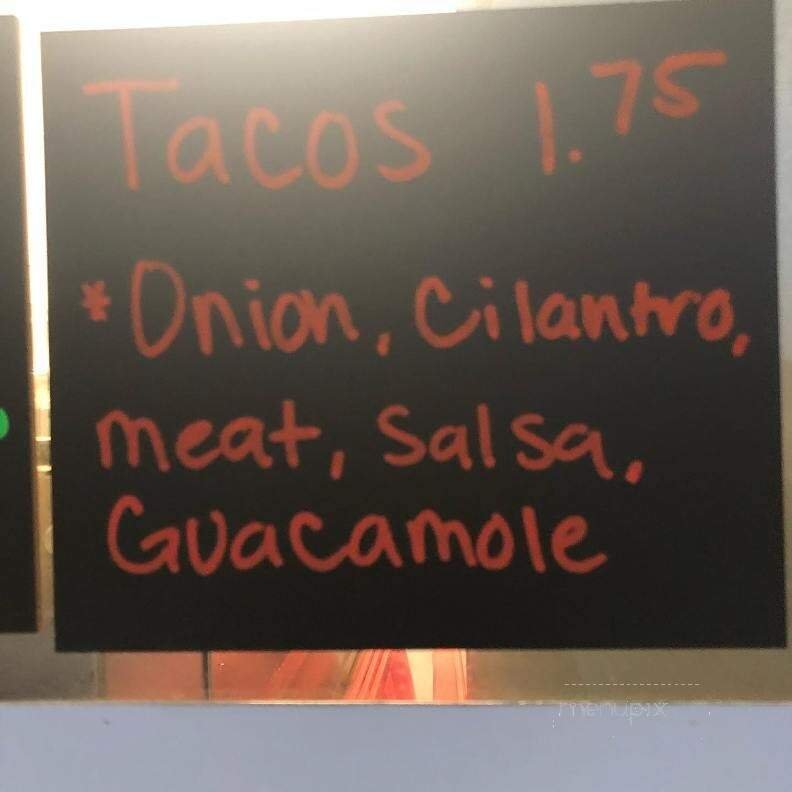 Tacos 1.75
*Onion, Cilantro,
meat, Salsa,
Guacamole
menupix